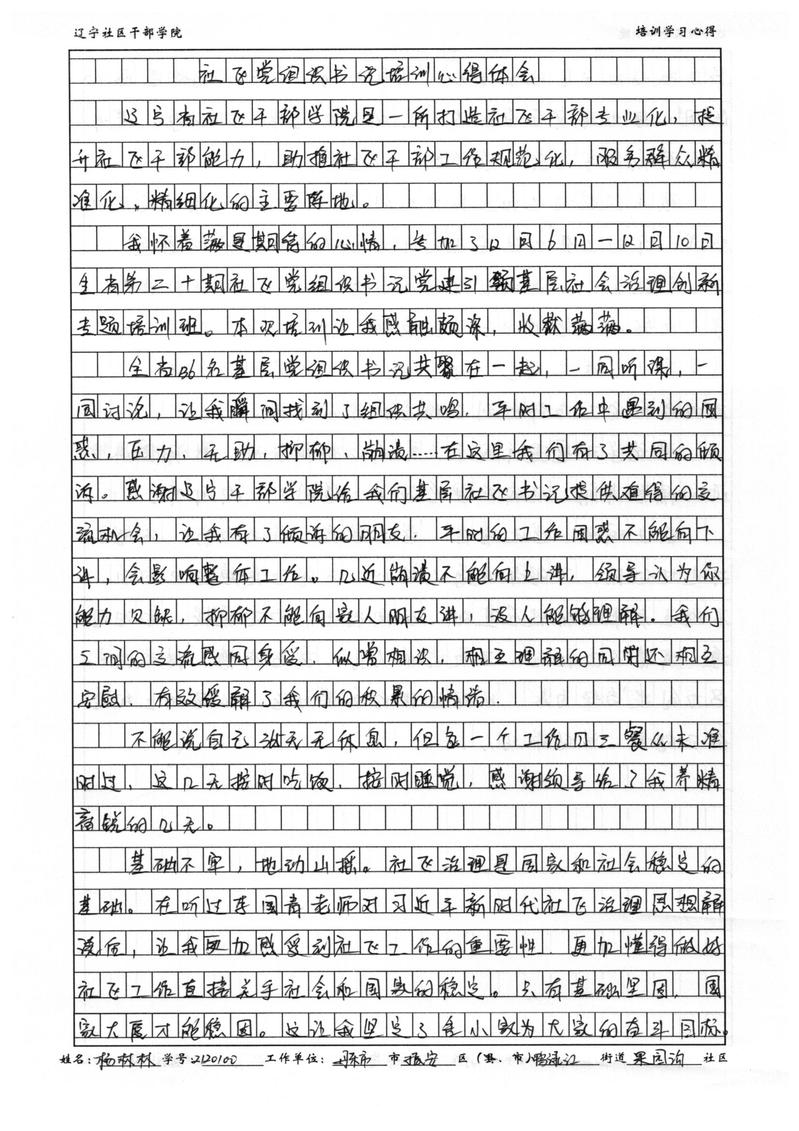 辽宁社区干部学院 培训学习心得
社区党组织书记培训心得体会
辽宁省社区干部学院是一所打造社区干部专业化，提
升社区干部能力，助推社区干部工作规范化，服务群众精
准化、精细化的主要阵地。
我怀着满是期待的心情，参加了12月6日—12月10日
全省第二十期社区党组织书记党建引领基层社会治理创新
专题培训班。本次培训让我感触颇深，收获满满。
全省86名基层党组织书记共聚在一起，一同听课，一
同讨论，让我瞬间找到了组织共鸣．平时工作中遇到的困
惑，压力，无助，抑郁，崩溃……在这里我们有了共同的倾
诉。感谢辽宁干部学院给我们基层社区书记提供难得的交
流机会，让我有了倾诉的朋友．平时的工作困惑不能向下
讲，会影响整体工作。几近崩溃不能向上讲，领导认为你
能力欠缺，抑郁不能向家人朋友讲，没人能够理解。我们
之间的交流感同身受．似曾相识，相互理解的同时还相互
安慰．有效缓解了我们的积累的情绪．
不能说自己365天无休息，但每一个工作日三餐从未准
时过，这几天按时吃饭，按时睡觉，感谢领导给了我养精
蓄锐的几天。
基础不牢，地动山摇。社区治理是国家和社会稳定的
基础。在听过李国青老师对习近平新时代社区治理思想解
读后，让我更加感受到社区工作的重要性．更加懂得做好
社区工作直接关乎社会和国家的稳定。只有基础坚固，国
家大厦才能稳固。这让我坚定了舍小家为大家的奋斗目标。
姓名：杨林林 学号2120100 工作单位： 丹东市 市 振安 区（县、市）鸭绿江 街道 果园沟 社区